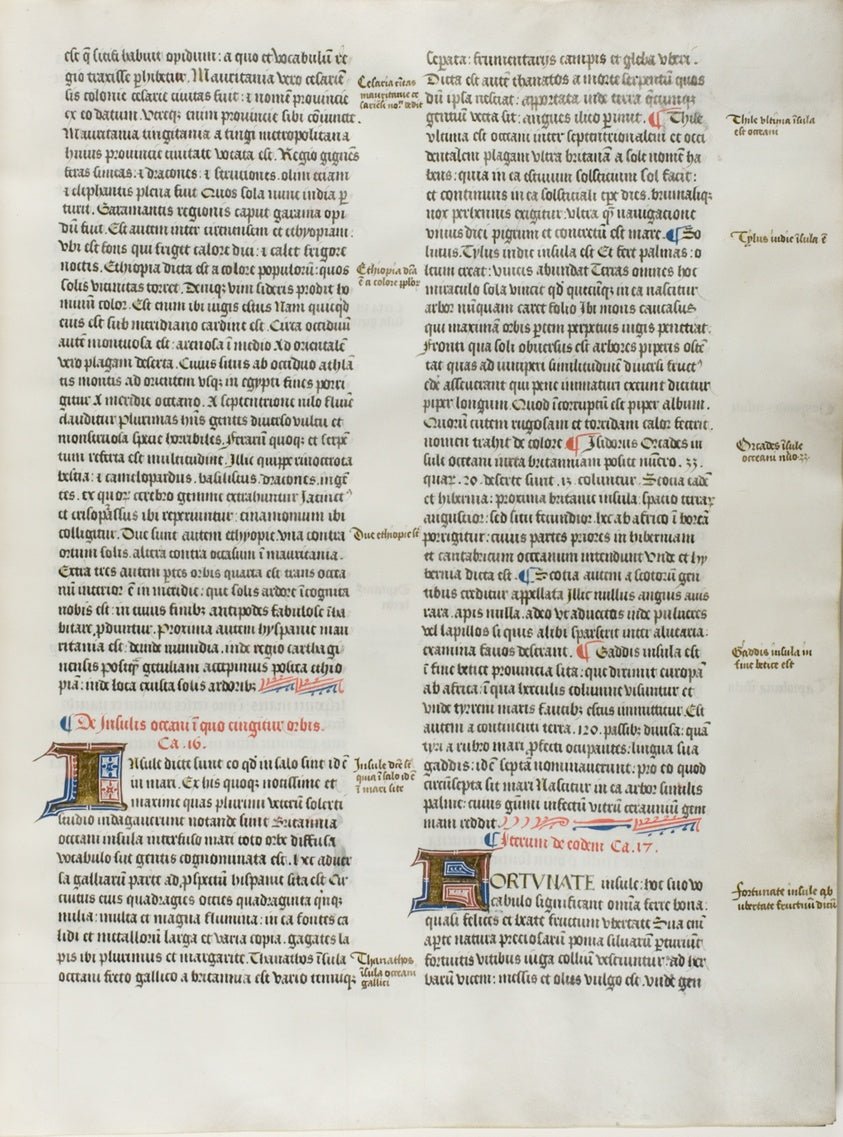 est q̄ sitifi habuit opidum: a quo et vocabulū re
gio traxisse ꝑhibetur. Mauritania vero cesariē
sis colonie cesarie ciuitas fuit: ⁊ nomē prouincie
ex eo datum Vtreq; enim prouincie sibi cōiuncte.
Mauritania tingitania a tingi metropolitana
huius prouincie ciuitate vocata est. Regio gignēs
feras simeas: ⁊ dracones: ⁊ strutiones. olim etiam
⁊ elephantis plena fuit Quos sola nunc india ꝑ
turit. Garamantis regionis caput garama opi
dū fuit. Est autem inter cirenensem et ethyopiam:
vbi est fons qui friget calore diei: ⁊ calet frigore
noctis. Ethiopia dicta est a colore populorū: quos
solis vicinitas torret. Deniq; vim sideris prodit ho
minū color. Est enim ibi iugis estus Nam quicq̄d
eius est sub meridiano cardine est. Circa occiduū
autē montuosa est: arenosa ī medio Ad orientalē
vero plagam deserta. Cuius situs ab occiduo athlā
tis montis ad orientem vsq; in egypti fines porri
gitur A meridie occeano. A septentrione nilo flumīe
clauditur plurimas hn̄s gentes diuerso vultu et
monstruosa specie horribiles. Ferarū quoq; et serpē
tum referta est multitudine. Illic quippe rinocerota
bestia: ⁊ camelopardus, basiliscus. dracones. ingē
tes. ex quor cerebro gemme extrahuntur Jacinct⁹
et crisopāssus ibi reperiuntur: cinamomum ibi
colligitur. Due sunt autem ethyopie. vna contra
ortum solis. altera contra occasum ī mauritania.
Extra tres autem ꝑtes orbis quarta est trans occea
nū interior ē in meridie: que solis ardore īcognita
nobis est: in cuius finibꝫ antipodes fabulose īha
bitare ꝓduntur. Proxima autem hyspanie mau
ritania est: deinde numidia. inde regio carthagi
nensis postq̄ getuliam accepimus postea ethio
piā: inde loca exusta solis ardoribꝫ
De Insulis occeani ī quo cingitur orbis.
Ca. 16.
Insule dicte sunt eo qd' in salo sint id ē
in mari. Ex his quoq; notissime et
maxime quas plurimi veterū solerti
studio indagauerunt notande sunt Britannia
occeani insula interfuso mari toto orbe diffusa
vocabulo sue gentis cognominata est. hec aduer
sa galliarū parte ad ꝓspectū hispanie sita est Cir
cuitus eius quadragies octies quadraginta qnq;
milia: multa et magna flumina: in ea fontes ca
lidi et metallorū larga et varia copia. gagates la
pis ibi plurimus et margarite. Thanathos īsula
occeani freto gallico a britannia est vario tenuiq;
Cesaria ciuitas
mauritanie ce
sariēsis
Ethiopia dc̄a
ē a colore pplor
Due ethiopie st̄
Insule dc̄e st̄
quia ī salo id ē
ī mari site
Thanathos
īsula occeani
gallici
seperata: frumentarijs campis et gleba vberi.
Dicta est autē thanatos a morte serpentū quos
dū ipsa nesciat: apportata inde terra qcunq;
gentiū vecta sit: angues ilico perimit. Thile
vltima est occeani inter septentrionalem et occi
dentalem plagam vltra britaniā a sole nomē ha
bens: quia in ea estiuum solsticium sol facit:
et continuus in ea solsticiali tpe dies. brumaliq;
nox perhennis exigitur. vltra quā nauigatione
vnius diei pigrum et concretū est mare. So
linus. Tylus indie insula est Et fert palmas: o
leum creat: vineis abundat Terras omnes hoc
miraculo sola vincit qd' quecūq; in ea nascitur
arbor nūquam caret folio Ibi mons caucasus
qui maximā orbis ꝑtem perpetuis iugis penetrat.
Fronti qua soli obuersus est arbores piperis ostē
tat quas ad iuniperi similitudinē diuersi fruct⁹
edē asseuerant qui pene immaturi exeunt dicitur
piper longum. Quod īcorruptū est piper album.
Quorū cutem rugosam et torridam calor fecerit.
nomen trahit de colore Isidorus Orcades in
sule occeani intra britanniam posite nūero. 33.
quar. 20. deserte sunt. 13. coluntur. Scotia eadē
et hibernia: proxima britanie insula: spacio terrar
angustior: sed situ fecundior. hec ab africo ī boreā
porrigitur: cuius partes priores in hiberniam
et cantabricum occeanum intendunt Vnde et hy
bernia dicta est. Scotia autem a scotorū gen
tibus creditur appellata Illic nullus anguis auis
rara. apis nulla. adeo vt aduectos inde pulueres
vel lapillos si quis alibi sparserit inter aluearia:
examina fauos deserant. Gaddis insula est
ī fine betice prouincia sita: que dirimit europā
ab africa: ī qua herculis columne visuntur et
vnde tyrreni maris faucibꝫ estus immittitur. Est
autem a continenti terra. 120. passibꝫ diuisa: quā
tyri a rubro mari ꝓfecti occupantes: lingua sua
gaddis: id ē septā nominauerunt: pro eo quod
circūsepta sit mari Nascitur in ea arbor similis
palme: cuius gūmi infectū vitrū ceraunuū gem
mam reddit.
Iterum de eodem Ca. 17.
FORTVNATE insule: hoc suo vo
cabulo significant omia ferre bona.
quasi felices et beate fructuum vbertate Sua enī
apte natura preciosarū poma siluarū ꝑturiunt
fortuitis vitibus iuga collium vestiuntur: ad her
barū vicem: messis et olus vulgo est. vnde gen
Thile vltima īsula
est occeani
Tylus indie īsula ē
Orcades īsule
occeani nūo. 33
Gaddis insula in
fine betice est
Fortunate insule ab
vbertate fructuum dicūt